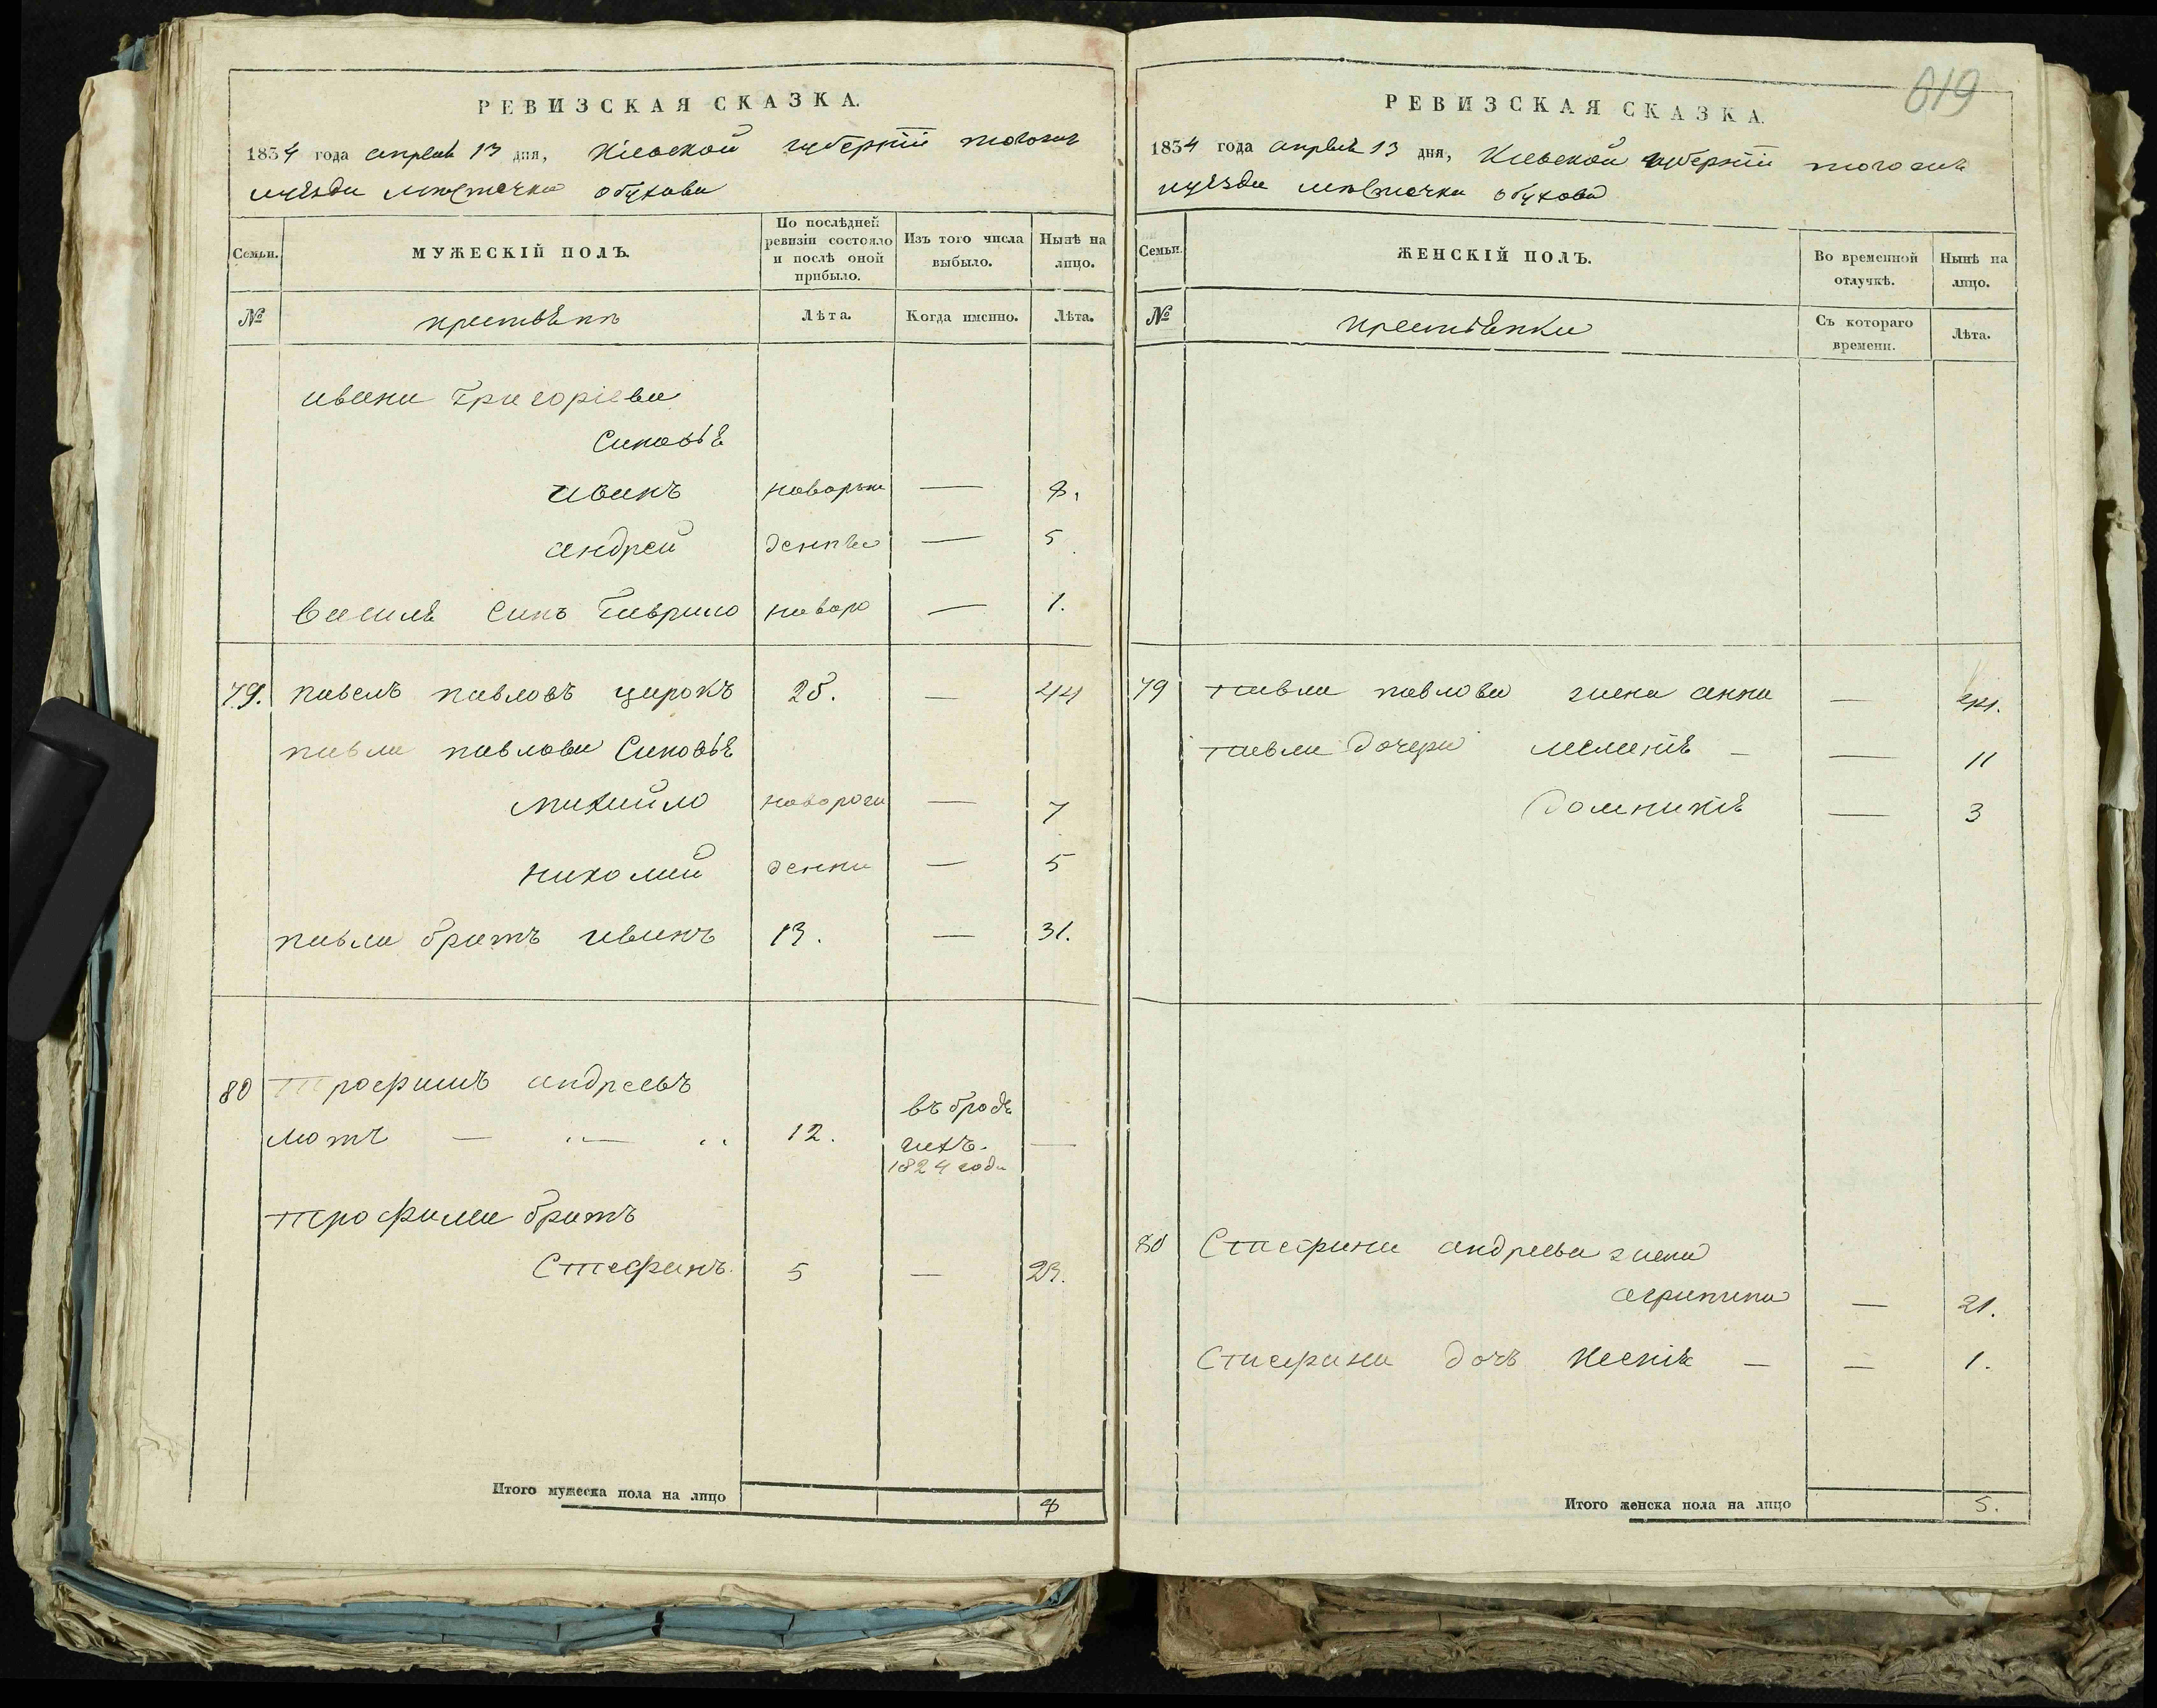 РЕВИЗСКАЯ СКАЗКА.
1834 года апреля 13 дня, Кіевской губерніи тогожъ
уезда местечка обухова
Семьи.
МУЖЕСКІЙ ПОЛЪ.
По послѣдней ревизіи состояло и послѣ оной прибыло.
Изъ того числа выбыло.
Нынѣ на лицо.
№
Лѣта.
Когда именно.
Лѣта.
ивана григоріева
Синовьѣ
иванъ — 8.
андрей — 5
василѣ Синъ гаврило новоро — 1.
79. павелъ павловъ цирокъ — 44
павла павлова Синовьѣ
михайло новорож — 7
николай денни — 5
павла братъ иванъ 13. — 31.
80 Трофимъ андреевъ
мотъ — 12. въ бродя
гахъ. —
1824 года
трофима братъ
Стефанъ. 5 — 23.
Итого мужеска пола на лицо 8
619
РЕВИЗСКАЯ СКАЗКА.
1834 года апреля 13 дня, Кіевской губерніи тогожъ
уезда местечка обухова
Семьи.
ЖЕНСКІЙ ПОЛЪ.
Во временной отлучкѣ.
Нынѣ на лицо.
№
Съ котораго времени.
Лѣта.
79 павла павлова жена анна —
павла дочери меланіѣ — — 11
домникіѣ — 3
80 Стефана андреева жена
агрипина — 21.
Стефана дочъ Ксеніѣ — — 1.
Итого женска пола на лицо 5.